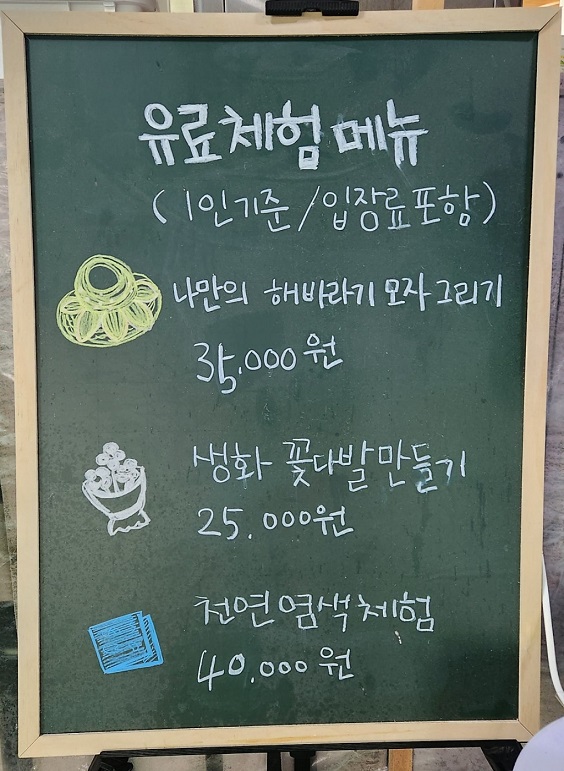 유료체험 메뉴
(1인기준/입장료포함)
나만의 해바라기 모자 그리기
35,000원
생화 꽃다발 만들기
25.000원
천연염색체험
40.000원